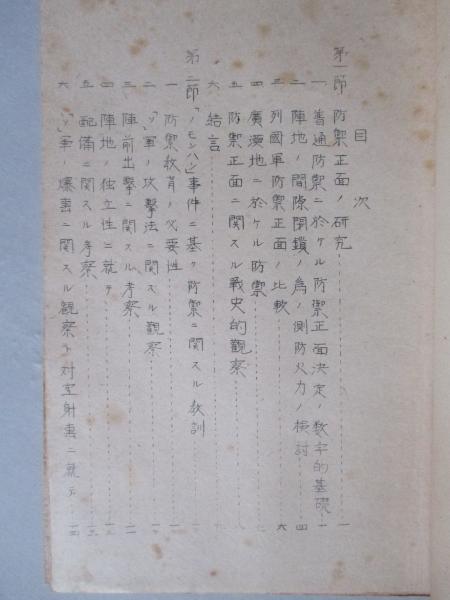 目次
第一節 防禦正面ノ研究 一
一 普通防禦ニ於ケル防禦正面決定ノ数字的基礎 一
二 陣地ノ間隙閉鎖ノ為ノ側防火力ノ検討 四
三 列國軍防禦正面ノ比較 六
四 廣漠地ニ於ケル防禦
五 防禦正面ニ関スル戦史的観察
六 結言
第二節 「ノモンハン」事件ニ基ク防禦ニ関スル教訓
一 防禦教育ノ必要性
二 「ソ」軍ノ攻撃法ニ関スル観察
三 陣前出撃ニ関スル考察
四 陣地ノ独立性ニ就テ
五 配備ニ関スル考察 一三
六 「ソ」軍ノ爆撃ニ関スル観察ト対空射撃ニ就テ 一四